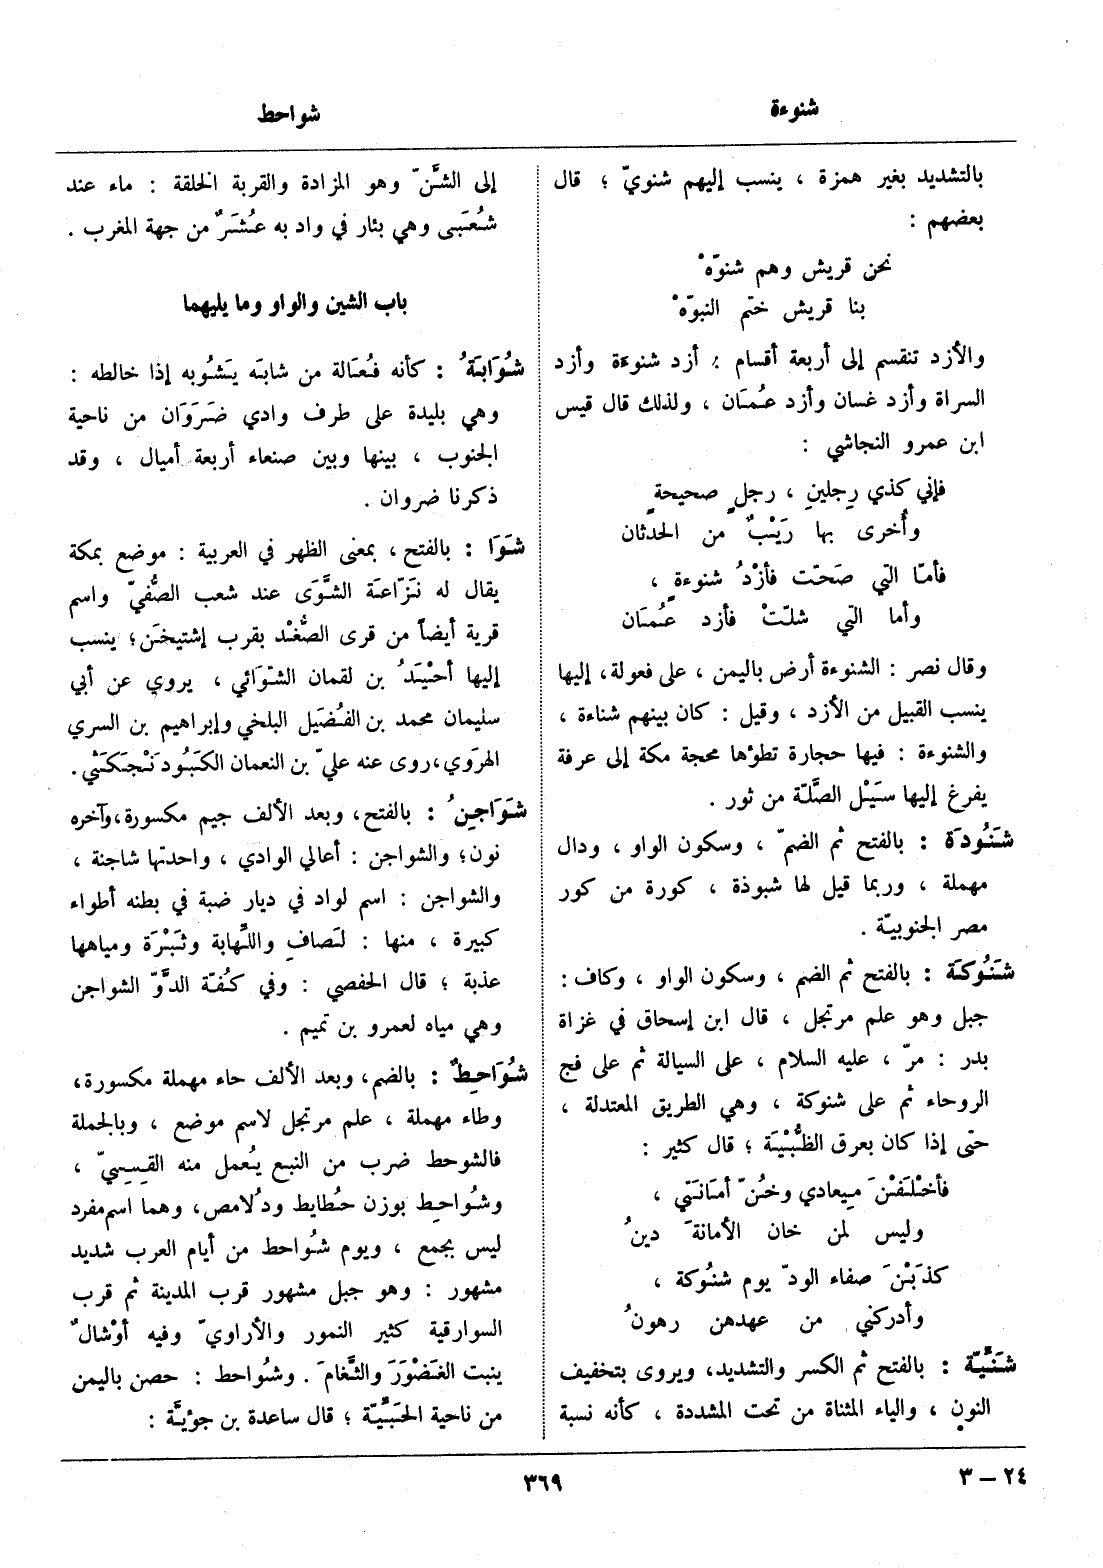 شنوءة
شواحط
بالتشديد بغير همزة ، ينسب إليهم شنويّ ؛ قال
بعضهم :
نحن قريش وهم شنوّهْ
بنا قريش ختم النبوّهْ
والأزد تنقسم إلى أربعة أقسام : أزد شنوءة وأزد
السراة وأزد غسان وأزد عُمَان ، ولذلك قال قيس
ابن عمرو النجاشي :
فإني كذي رِجلينِ ، رجلٍ صحيحةٍ
وأُخرى بها رَيْبٌ من الحدثان
فأمّا التي صَحّت فأزْدُ شنوءةٍ ،
وأما التي شلّتْ فأزد عُمَان
وقال نصر : الشنوءة أرض باليمن ، على فعولة ، إليها
ينسب القبيل من الأزد ، وقيل : كان بينهم شناءة ،
والشنوءة : فيها حجارة تطؤها محجة مكة إلى عرفة
يفرغ إليها سَيْل الصَّلّة من ثور .
شَنُودَة : بالفتح ثم الضمّ ، وسكون الواو ، ودال
مهملة ، وربما قيل لها شبوذة ، كورة من كور
مصر الجنوبيّة .
شَنُوكَة : بالفتح ثم الضم ، وسكون الواو ، وكاف :
جبل وهو علم مرتجل ، قال ابن إسحاق في غزاة
بدر : مرّ ، عليه السلام ، على السيالة ثم على فج
الروحاء ثم على شنوكة ، وهي الطريق المعتدلة ،
حتى إذا كان بعرق الظُّبْيَة ؛ قال كثير :
فأخْلَفْنَ مِيعادي وخُنّ أمانَتي ،
وليس لمن خان الأمانةَ دينُ
كذَبْنَ صفاء الودّ يوم شنُوكة ،
وأدركني من عهدهن رهونُ
شَنَّيّة : بالفتح ثم الكسر والتشديد ، ويروى بتخفيف
النون ، والياء المثناة من تحت المشددة ، كأنه نسبة
إلى الشَّنّ وهو المزادة والقربة الخلقة : ماء عند
شُعَبَى وهي بئار في واد به عُشَرٌ من جهة المغرب .
باب الشين والواو وما يليهما
شُوَابَةُ : كأنه فُعَالة من شابَه يَشُوبه إذا خالطه :
وهي بليدة على طرف وادي ضَرَوَان من ناحية
الجنوب ، بينها وبين صنعاء أربعة أميال ، وقد
ذكرنا ضروان .
شَوَا : بالفتح ، بمعنى الظهر في العربية : موضع بمكة
يقال له نَزّاعَة الشَّوَى عند شعب الصُّفيّ واسم
قرية أيضاً من قرى الصُّغْد بقرب إشتيخَن ؛ ينسب
إليها أحْيَدُ بن لقمان الشَّوَائي ، يروي عن أبي
سليمان محمد بن الفُضَيل البلخي وإبراهيم بن السري
الهرَوي ، روى عنه عليّ بن النعمان الكَبُوذَنْجَكَثي .
شَوَاجِنُ : بالفتح ، وبعد الألف جيم مكسورة ، وآخره
نون ؛ والشواجن : أعالي الوادي ، واحدتها شاجنة ،
والشواجن : اسم لواد في ديار ضبة في بطنه أطواء
كبيرة ، منها : لَصافِ واللَّهابة وثَبْرَة ومياهها
عذبة ؛ قال الحفصي : وفي كُفّة الدَّوّ الشواجن
وهي مياه لعمرو بن تميم .
شُوَاحِطٌ : بالضم ، وبعد الألف حاء مهملة مكسورة ،
وطاء مهملة ، علم مرتجل لاسم موضع ، وبالجملة
فالشوحط ضرب من النبع يُعمل منه القِسِيّ ،
وشُواحِط بوزن حُطايط ودُلامص ، وهما اسم مفرد
ليس بجمع ، ويوم شُواحط من أيام العرب شديد
مشهور : وهو جبل مشهور قرب المدينة ثم قرب
السوارقية كثير النمور والأراويّ وفيه أوْشالٌ
ينبت الغَضْوَرَ والثَّغامَ . وشُواحط : حصن باليمن
من ناحية الحَبَّيّة ؛ قال ساعدة بن جؤيَّة :
٢٤ – ٣
٣٦٩